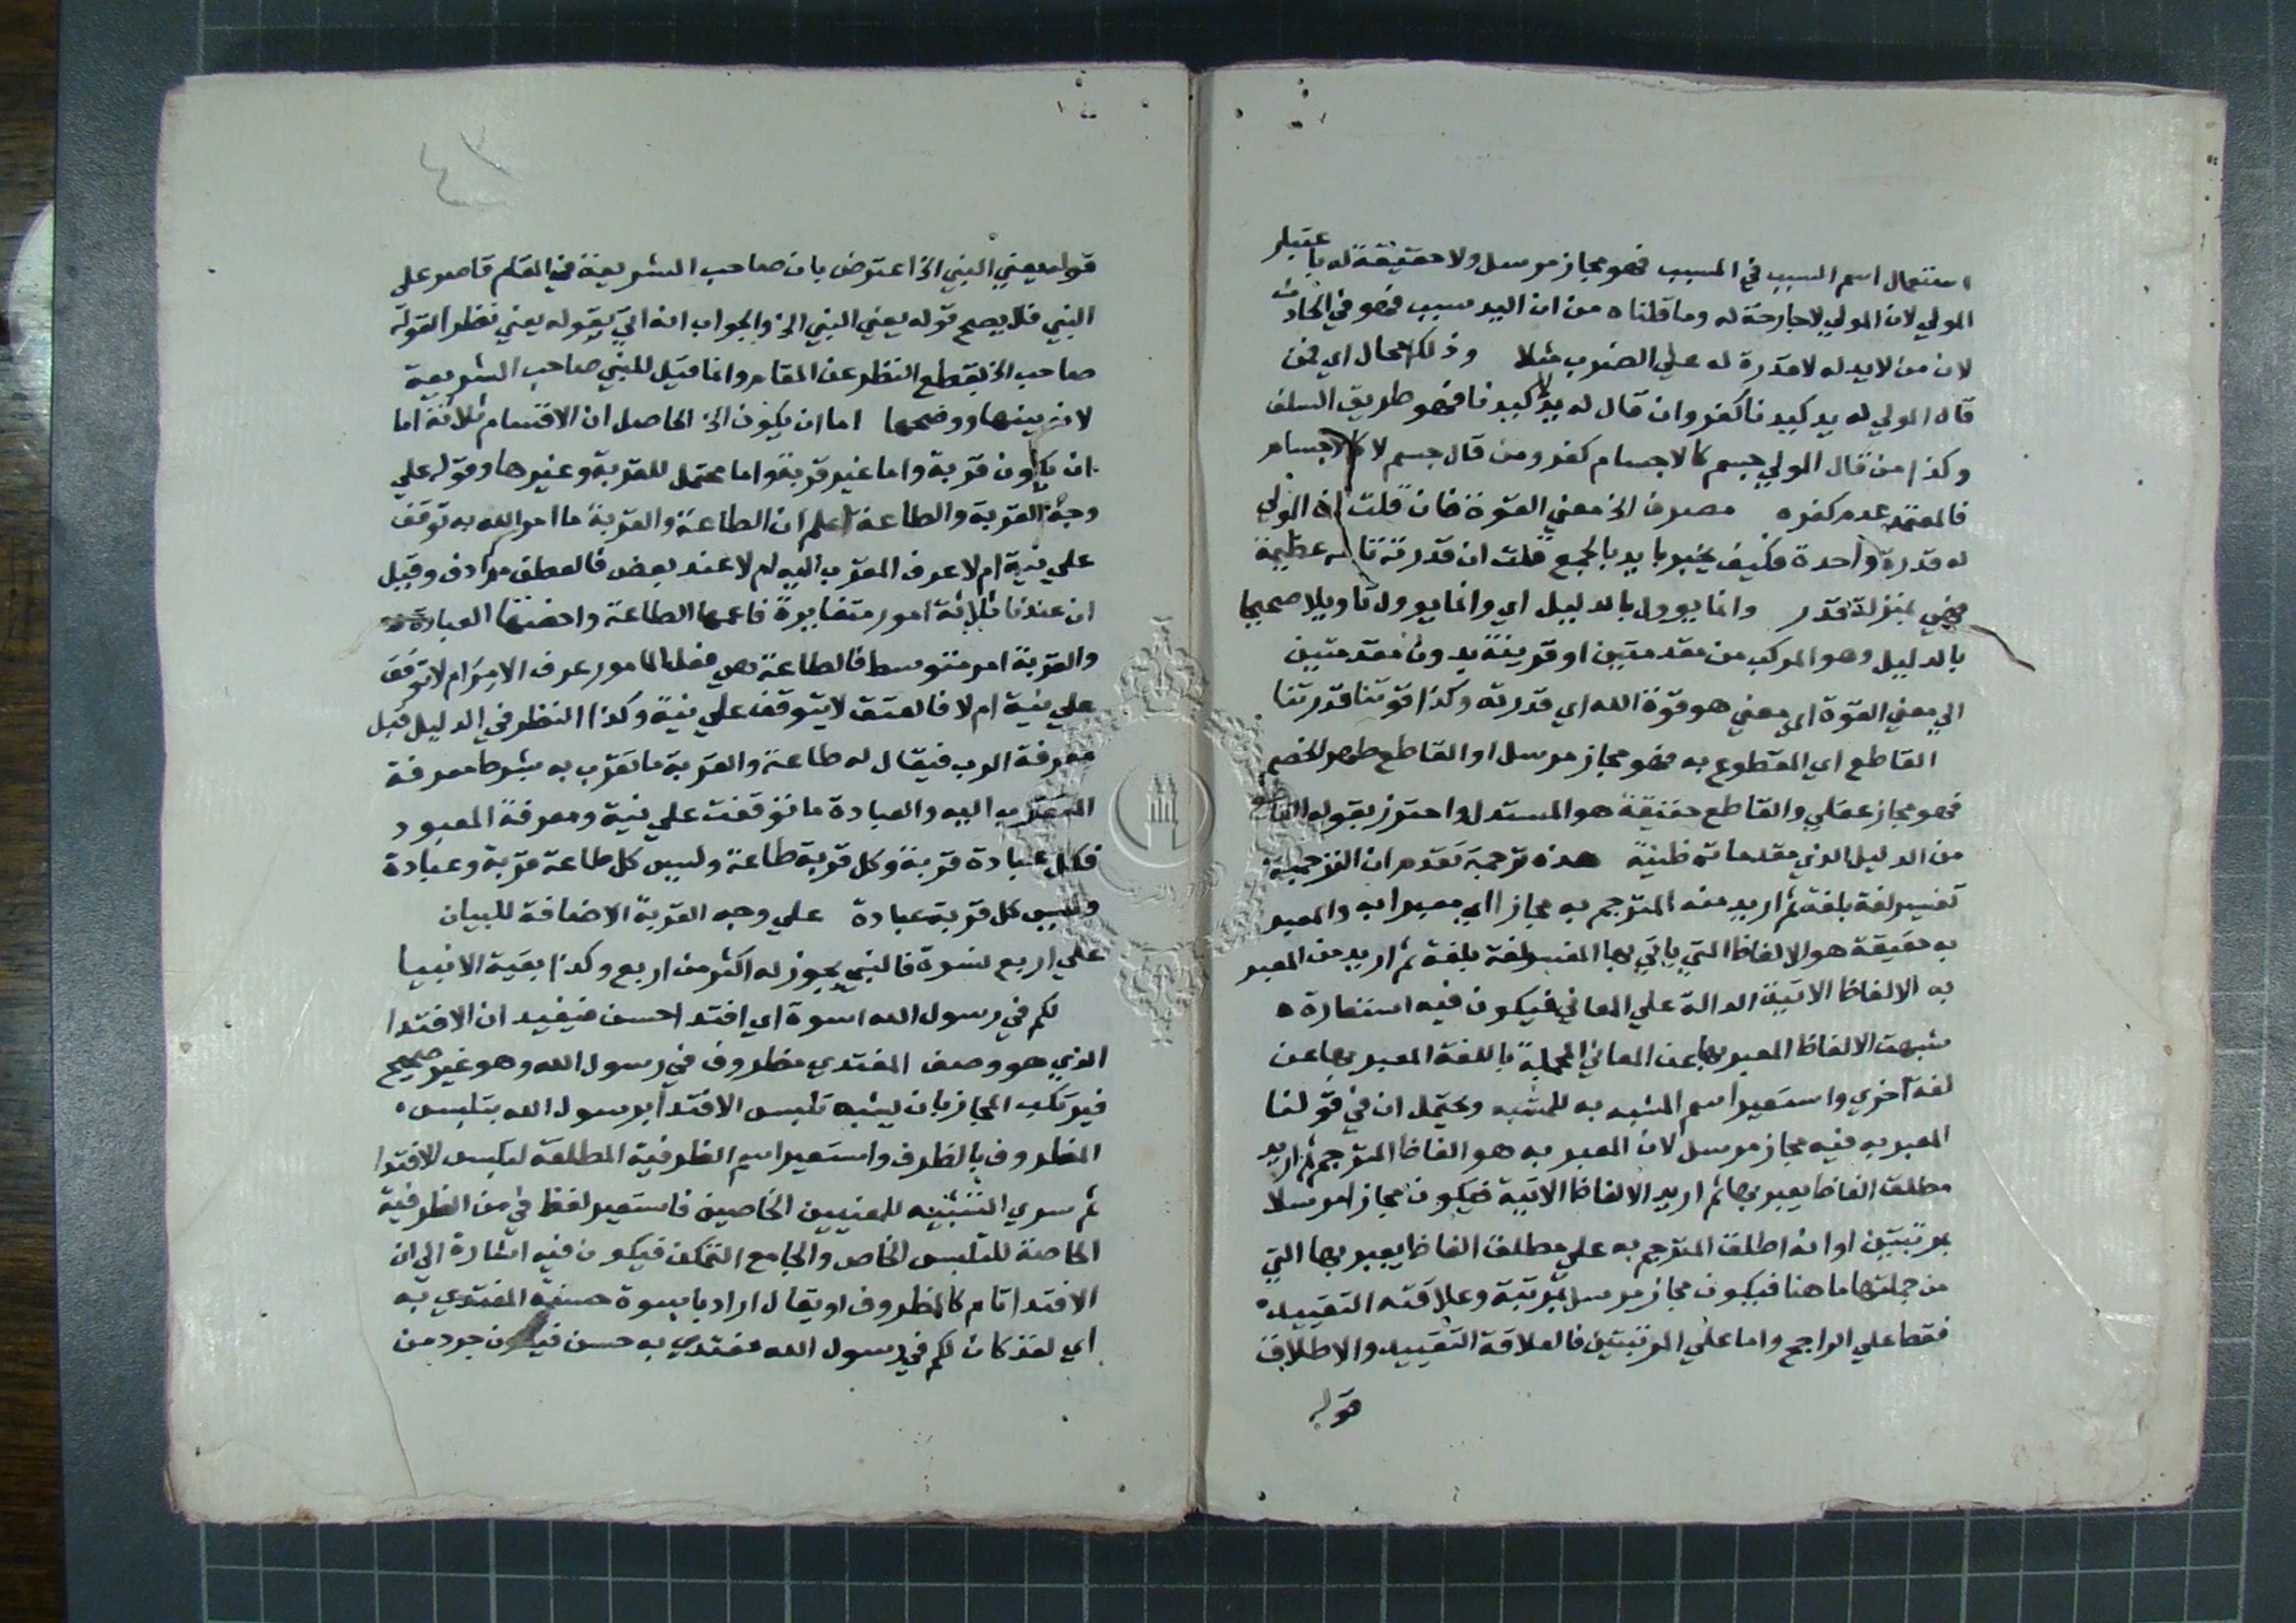 استعمال اسم السبب في المسبب فهو مجاز مرسل ولا حقيقة له باعتبار
المولي لان المولي لا جارحة له وما قلناه من ان اليد سبب فهو في الحادث
لان من لا يد له لا قدرة له علي الضرب مثلا وذلك محال اي فمن
قال المولي له يد كيدنا كفر وان قال له يد لا كيدنا فهو طريق السلف
وكذا من قال المولي جسم كالاجسام كفر ومن قال جسم لا كالاجسام
فالمعتمد عدم كفره مصروف الخ معني القوة فان قلت ان المولي
له قدرة واحدة فكيف يخبر بايد بالجمع قلت ان قدرته تامه عظيمة
فهي بمنزلة قدر وانما يوول بالدليل اي وانما يوول تاويلا صحيحا
بالدليل وهو المركب من مقدمتين او قرينة بدون مقدمتين
الي معني القوة الي معني هو قوة الله اي قدرته وكذا قوتنا قدرتنا
القاطع اي المقطوع به فهو مجاز مرسل او القاطع طمع الخصم
فهو مجاز عقلي والقاطع حقيقة هو المستدل واحترز بقوله القاطع
من الدليل الذي مقدماته ظنية هذه ترجمة تقدم ان الترجمة
تفسير لغة بلغة ثم اريد منه المترجم به مجازا اي معبرا به والمعبر
به حقيقة هو الالفاظ التي ياتي بها المفسر لغة بلغة ثم اريد من المعبر
به الالفاظ الاتية الدالة علي المعاني فيكون فيه استعارة
شبهت الالفاظ المعبر بها عن المعاني المجملة باللغة المعبر بها عن
لغة اخري واستعير اسم المشبه به للمشبه ويحتمل ان في قولنا
المعبر به فيه مجاز مرسل لان المعبر به هو الفاظ المترجم ثم اريد
مطلق الفاظ يعبر بها ثم اريد الالفاظ الاتية فيكون مجازا مرسلا
بمرتبتين او انه اطلق المترجم به علي مطلق الفاظ يعبر بها التي
من جملتها ما هنا فيكون مجاز مرسل بمرتبة وعلاقته التقييد
فقط علي الراجح واما علي المرتبتين فالعلاقة التقييد والاطلاق
قوله
٤٢
قوله يعني النبي الخ اعترض بان صاحب الشريعة في المقام قاصر علي
النبي فلا يصح قوله يعني النبي الخ والجواب انه اتي بقوله يعني نظر القوله
صاحب الخ بقطع النظر عن المقام وانما قيل للنبي صاحب الشريعة
لانه بينها ووضحها اما ان يكون الخ الحاصل ان الاقسام ثلاثة اما
ان يكون قربة واما غير قربة واما محتمل للقربة وغيرها وقوله علي
وجه القربة والطاعة اعلم ان الطاعة والقربة ما امر الله به توقف
علي نية ام لا عرف المقرب اليه ام لا عند بعض فالعطف مرادف وقيل
ان عندنا ثلاثة امور متغايرة فاعمها الطاعة واخصها العبادة
والقربة امر متوسط فالطاعة هي فعل المامور عرف الامر ام لا توقف
علي نية ام لا فالعتق لا يتوقف علي نية وكذا النظر في الدليل قبل
معرفة الرب فيقال له طاعة والقربة ما تقرب به بشرط معرفة
المتقرب اليه والعبادة ما توقفت علي نية ومعرفة المعبود
فكل عبادة قربة وكل قربة طاعة وليس كل طاعة قربة وعبادة
وليس كل قربة عبادة علي وجه القربة الاضافة للبيان
علي اربع نسوة فالنبي يجوز له اكثر من اربع وكذا بقية الانبيا
لكم في رسول الله اسوة اي اقتدا حسن فيفيد ان الاقتدا
الذي هو وصف المقتدي مظروف في رسول الله وهو غير صحيح
فيرتكب المجاز بان يشبه تلبس الاقتدا برسول الله بتلبس
المظروف بالظرف واستعير اسم الظرفية المطلقة لتلبس الاقتدا
ثم سري التشبيه للمعنيين الخاصين فاستعير لفظ في من الظرفية
الخاصة للتلبس الخاص والجامع التمكن فيكون فيه اشارة الي ان
الاقتدا تام كالمظروف او يقال اراد باسوة حسنة المقتدي به
اي لقد كان لكم في رسول الله مقتدي به حسن فيكون جرد من